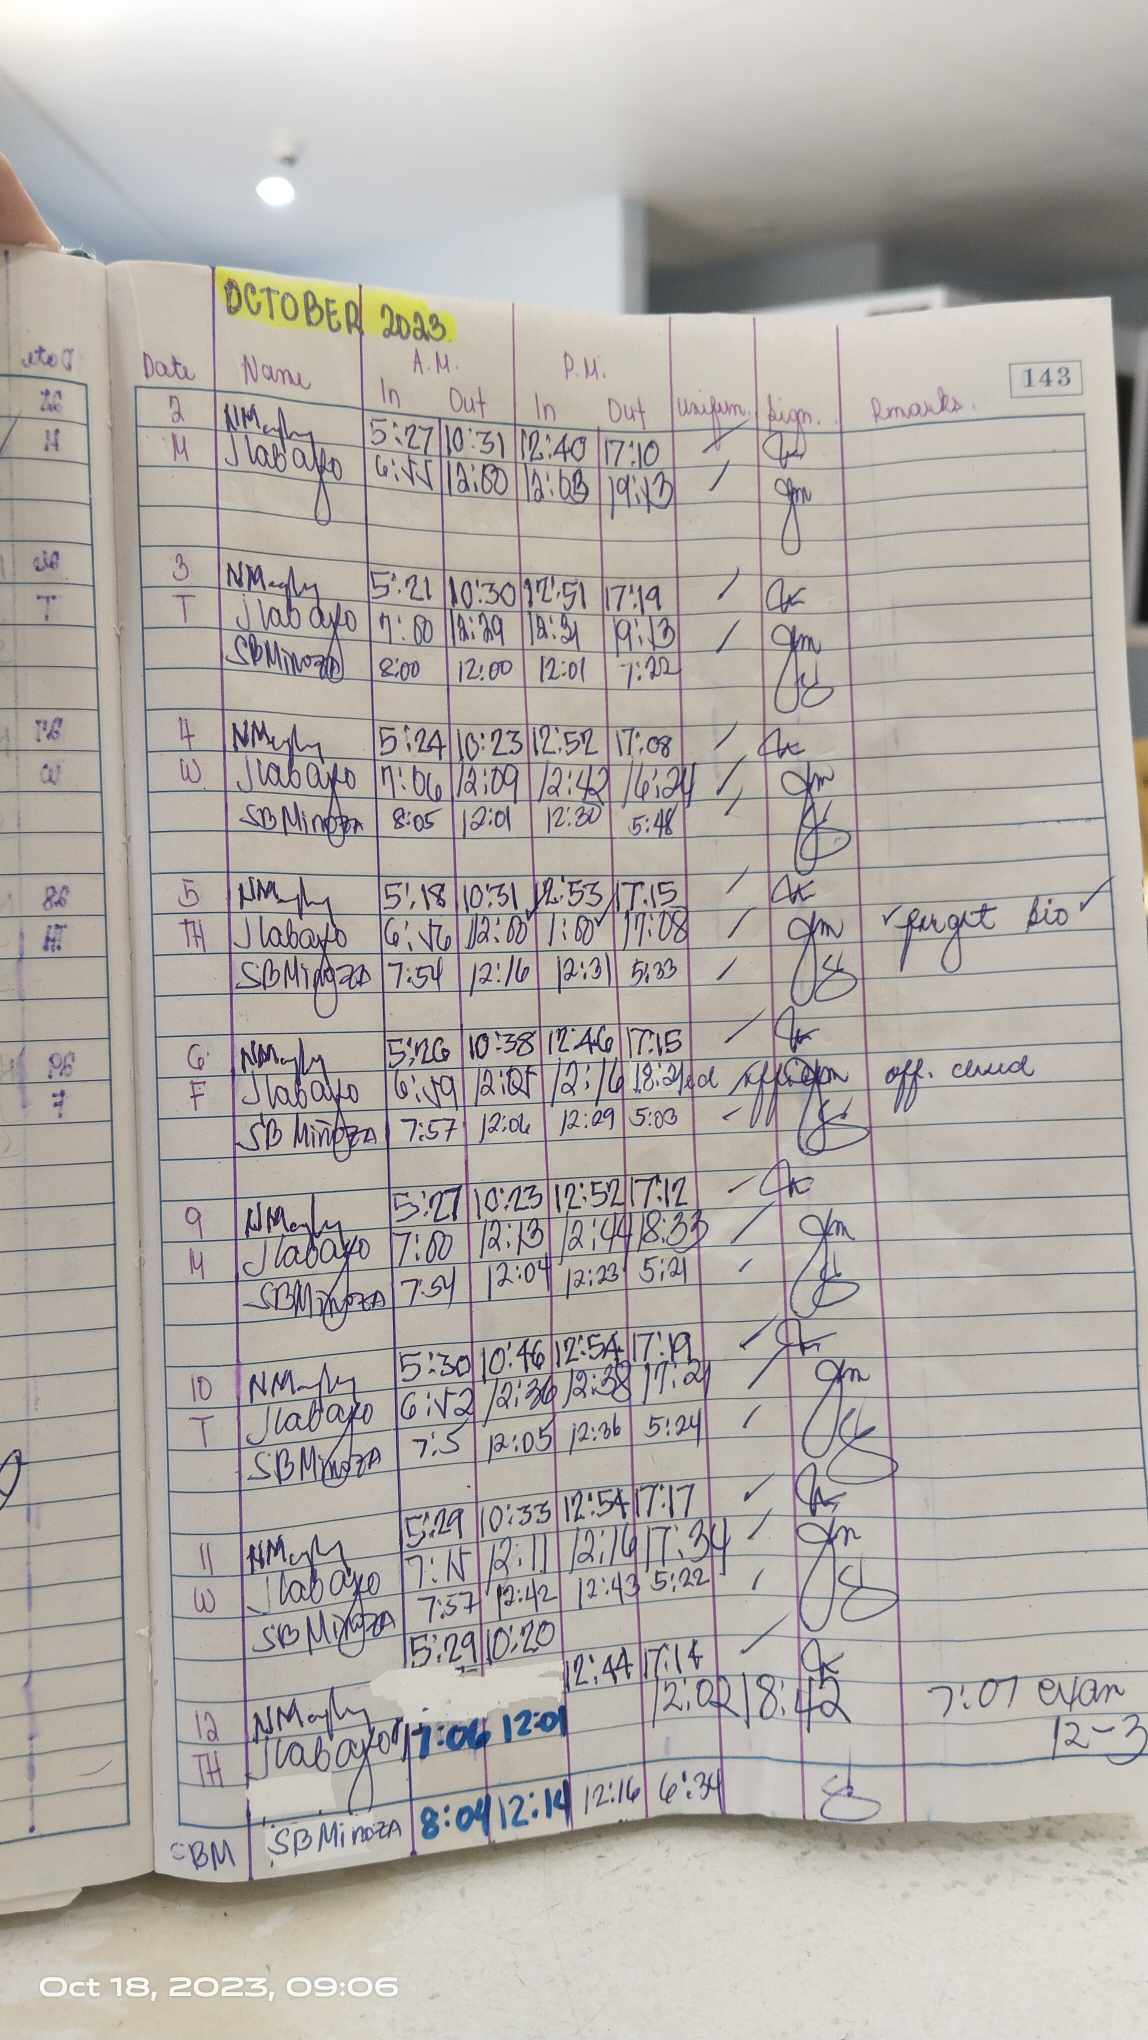 OCTOBER 2023
A.M. P.M.
Date Name In Out In Out Uniform. Sign. Rmarks.
143
2 5:27 10:31 12:40 17:10
M Jlabayo 6:55 12:00 12:03 19:13
3 5:21 10:30 12:51 17:19
T Jlabayo 7:00 12:29 12:31 19:13
SBMinoza 8:00 12:00 12:01 7:22
4 5:24 10:23 12:52 17:08
W Jlabayo 7:06 12:09 12:42 16:24
SBMinoza 8:05 12:01 12:30 5:48
5 5:18 10:31 12:53 17:15
TH Jlabayo 6:56 12:00 1:00 17:08 forgot bio
SBMinoza 7:54 12:16 12:31 5:33
6 5:26 10:38 12:46 17:15
F Jlabayo 6:59 12:05 12:16 off.
SB Miñoza 7:57 12:06 12:29 5:03
9 5:27 10:23 12:52 17:12
M Jlabayo 7:00 12:13 12:44 18:33
SBMinoza 7:54 12:04 12:23 5:21
10 5:30 10:46 12:54 17:19
T Jlabayo 6:52 12:36 12:38 17:21
SBMinoza 7:5 12:05 12:36 5:24
11 5:29 10:33 12:54 17:17
W Jlabayo 7:15 12:11 12:16 17:34
SBMinoza 7:57 12:42 12:43 5:22
12 5:29 10:20 12:44 17:14
TH Jlabayo 7:06 12:01 12:02 18:42 7:07
12-3
SBM SBMinoza 8:04 12:14 12:16 6:34
Oct 18, 2023, 09:06